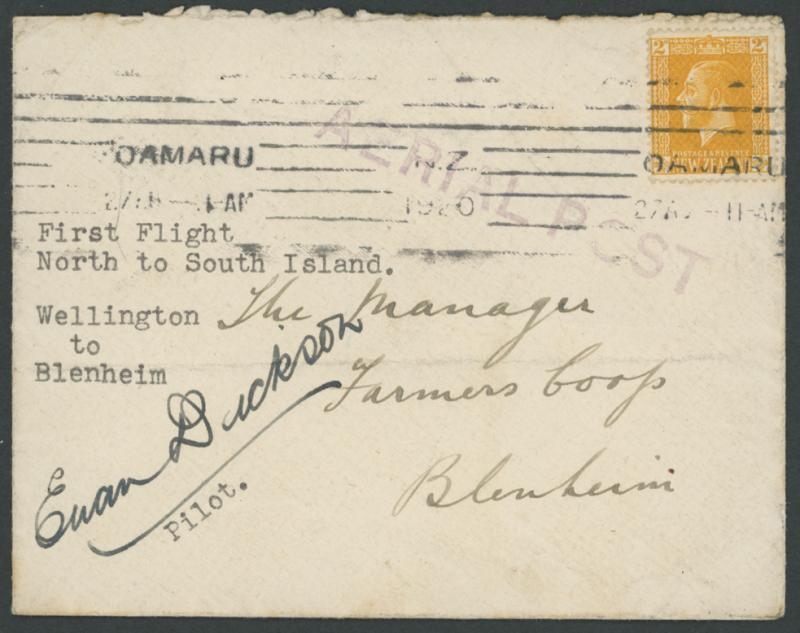 2 2
POSTAGE & REVENUE
NEW ZEALAND
OAMARU N.Z. OAMARU
11-AM 1920 11-AM
AERIAL POST
First Flight
North to South Island.
Wellington
to
Blenheim
The Manager
Farmers Coop
Blenheim
Euan Dickson
Pilot.